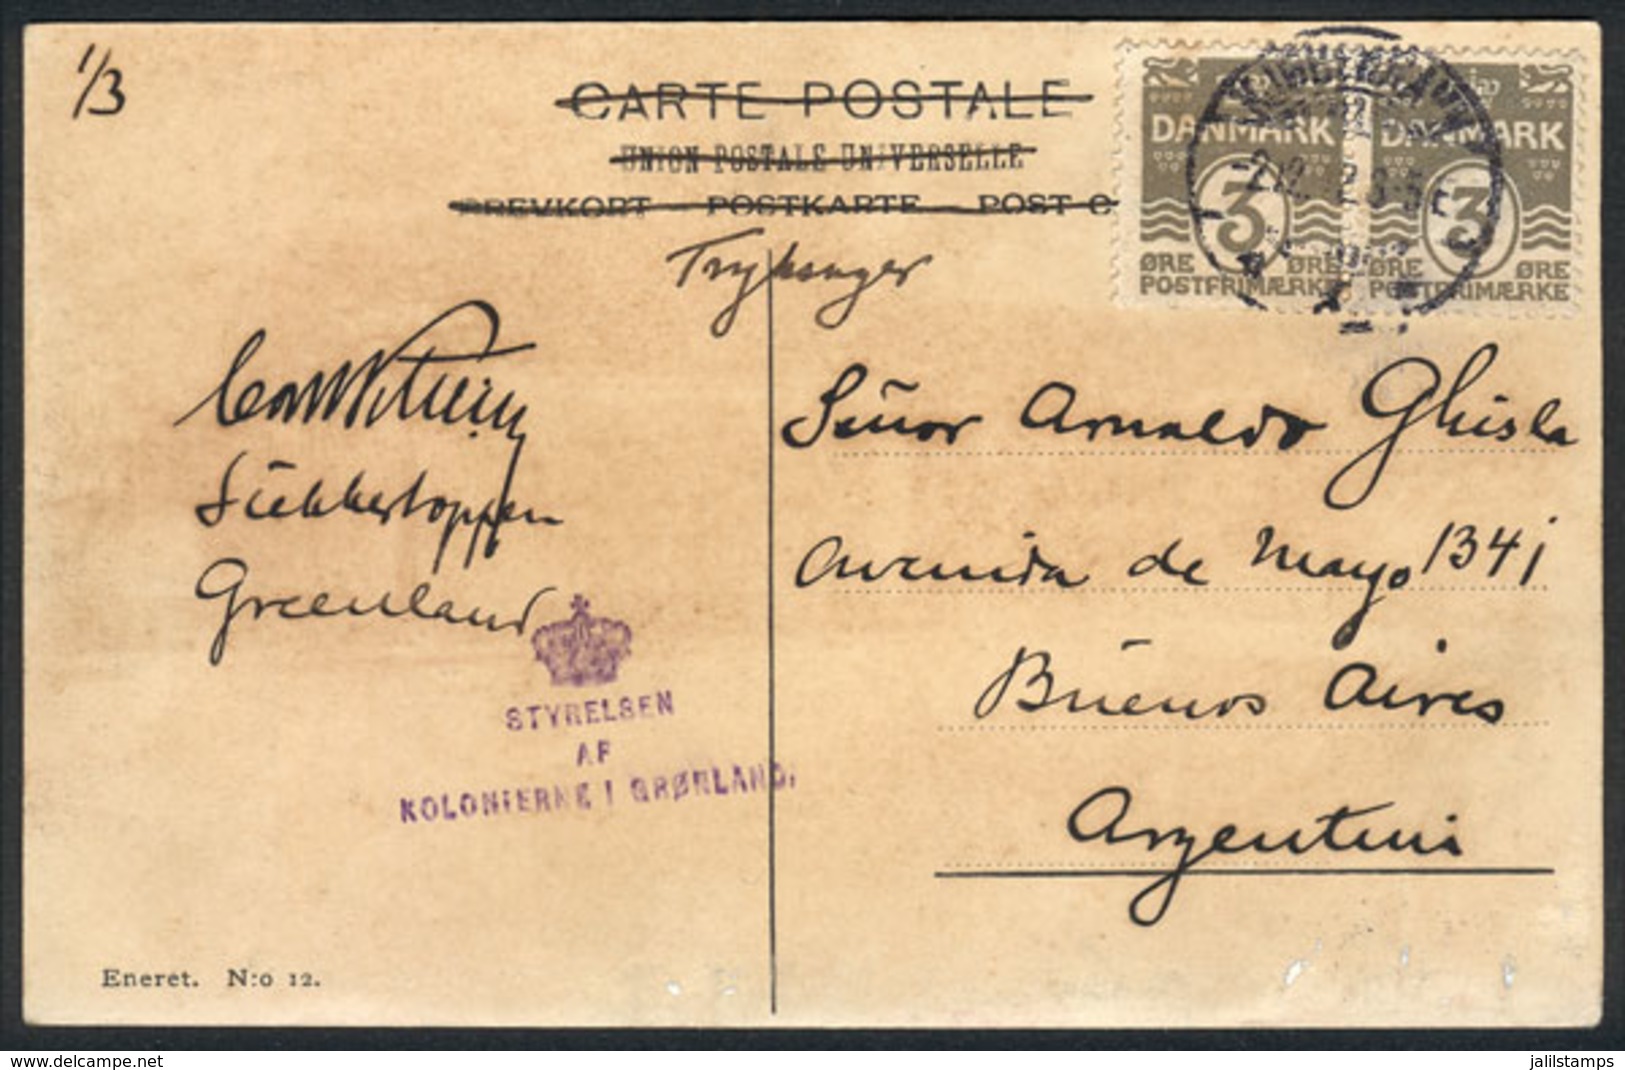 1/3
CARTE POSTALE
UNION POSTALE UNIVERSELLE
BREVKORT — POSTKARTE — POST C
DANMARK
DANMARK
3
3
ØRE ØRE
ØRE ØRE
POSTFRIMÆRKE
POSTFRIMÆRKE
Señor Arnaldo Ghisla
Sukkertoppen
Avenida de Mayo 1341
Greenland
Buenos Aires
STYRELSEN
AF
KOLONIERNE I GRØNLAND.
Argentini
Eneret. N:o 12.
www.delcampe.net
jalilstamps